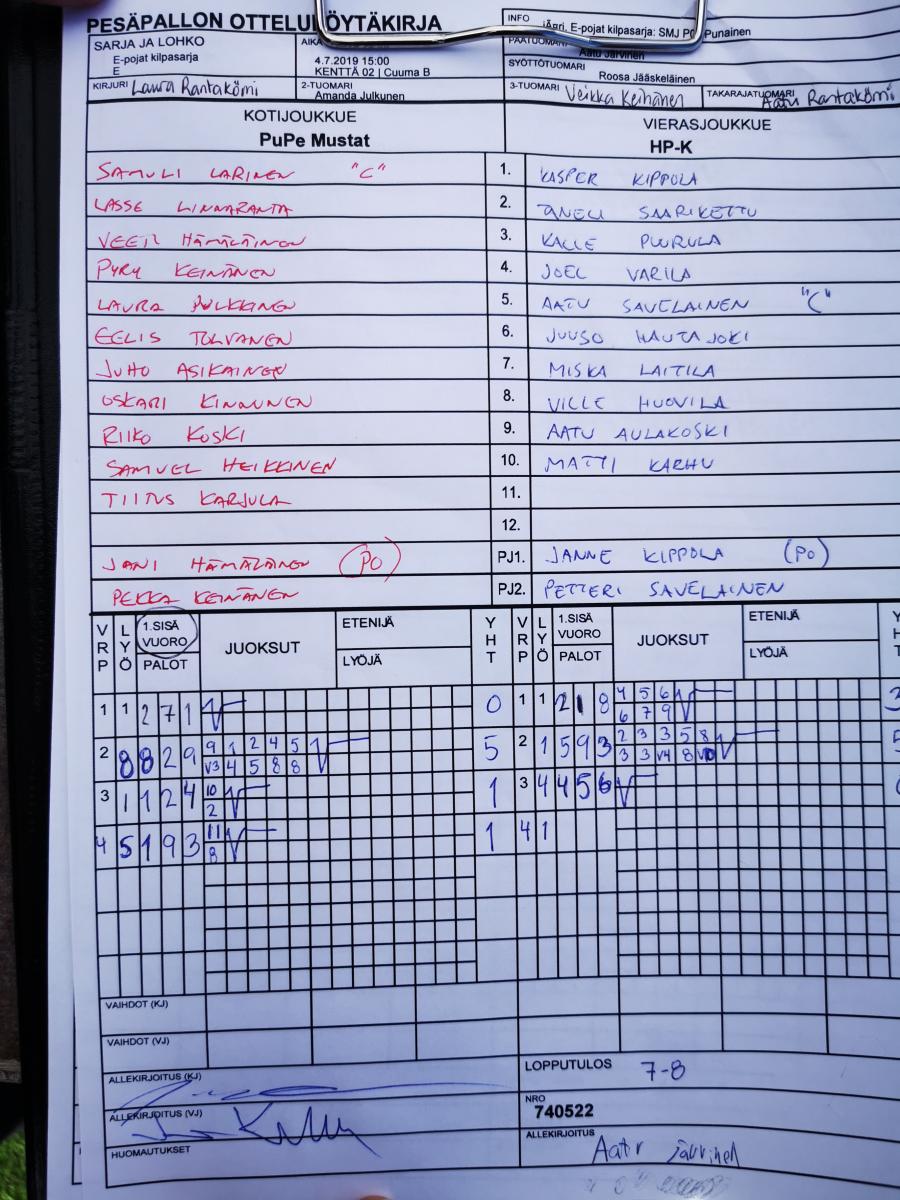 PESÄPALLON OTTELUPÖYTÄKIRJA
INFO
jÄgri, E-pojat kilpasarja: SMJ PO Punainen
SARJA JA LOHKO
E-pojat kilpasarja
E
AIKA
4.7.2019 15:00
KENTTÄ 02 | Cuuma B
PÄÄTUOMARI
Aatu Järvinen
SYÖTTÖTUOMARI
Roosa Jääskeläinen
KIRJURI Laura Rantakömi
2-TUOMARI
Amanda Julkunen
3-TUOMARI Veikka Keihänen
TAKARAJATUOMARI
Aatu Rantakömi
KOTIJOUKKUE
PuPe Mustat
VIERASJOUKKUE
HP-K
SAMULI LARINEN "C" 1. KASPER KIPPOLA
LASSE LINNARANTA 2. TANELI SAARIKETTU
VEETI HÄMÄLÄINEN 3. KALLE PUURULA
PYRY KEINÄNEN 4. JOEL VARILA
LAURA JULKKINEN 5. AATU SAVELAINEN "C"
EELIS TOLVANEN 6. JUUSO HAUTAJOKI
JUHO ASIKAINEN 7. MISKA LAITILA
OSKARI KINNUNEN 8. VILLE HUOVILA
RIIKO KOSKI 9. AATU AULAKOSKI
SAMUEL HEIKKINEN 10. MATTI KARHU
TIITUS KARJULA 11.
12.
JANI HÄMÄLÄINEN (PO) PJ1. JANNE KIPPOLA (PO)
PEKKA KEINÄNEN PJ2. PETTERI SAVELAINEN
VRP LYÖ 1.SISÄ VUORO PALOT JUOKSUT ETENIJÄ LYÖJÄ YHT VRP LYÖ 1.SISÄ VUORO PALOT JUOKSUT ETENIJÄ LYÖJÄ YHT
1 1 2 7 1 0 1 1 2 1 8 4 5 6 3
6 7 9
2 8 8 2 9 9 1 2 4 5 5 2 1 5 9 3 2 3 3 5 8 5
V3 4 5 8 8 3 3 V4 8 V10
3 1 1 2 4 10 1 3 4 4 5 6
2
4 5 1 9 3 11 1 4 1
8
VAIHDOT (KJ)
VAIHDOT (VJ)
ALLEKIRJOITUS (KJ)
LOPPUTULOS 7-8
ALLEKIRJOITUS (VJ)
NRO
740522
HUOMAUTUKSET
ALLEKIRJOITUS
Aatu Järvinen